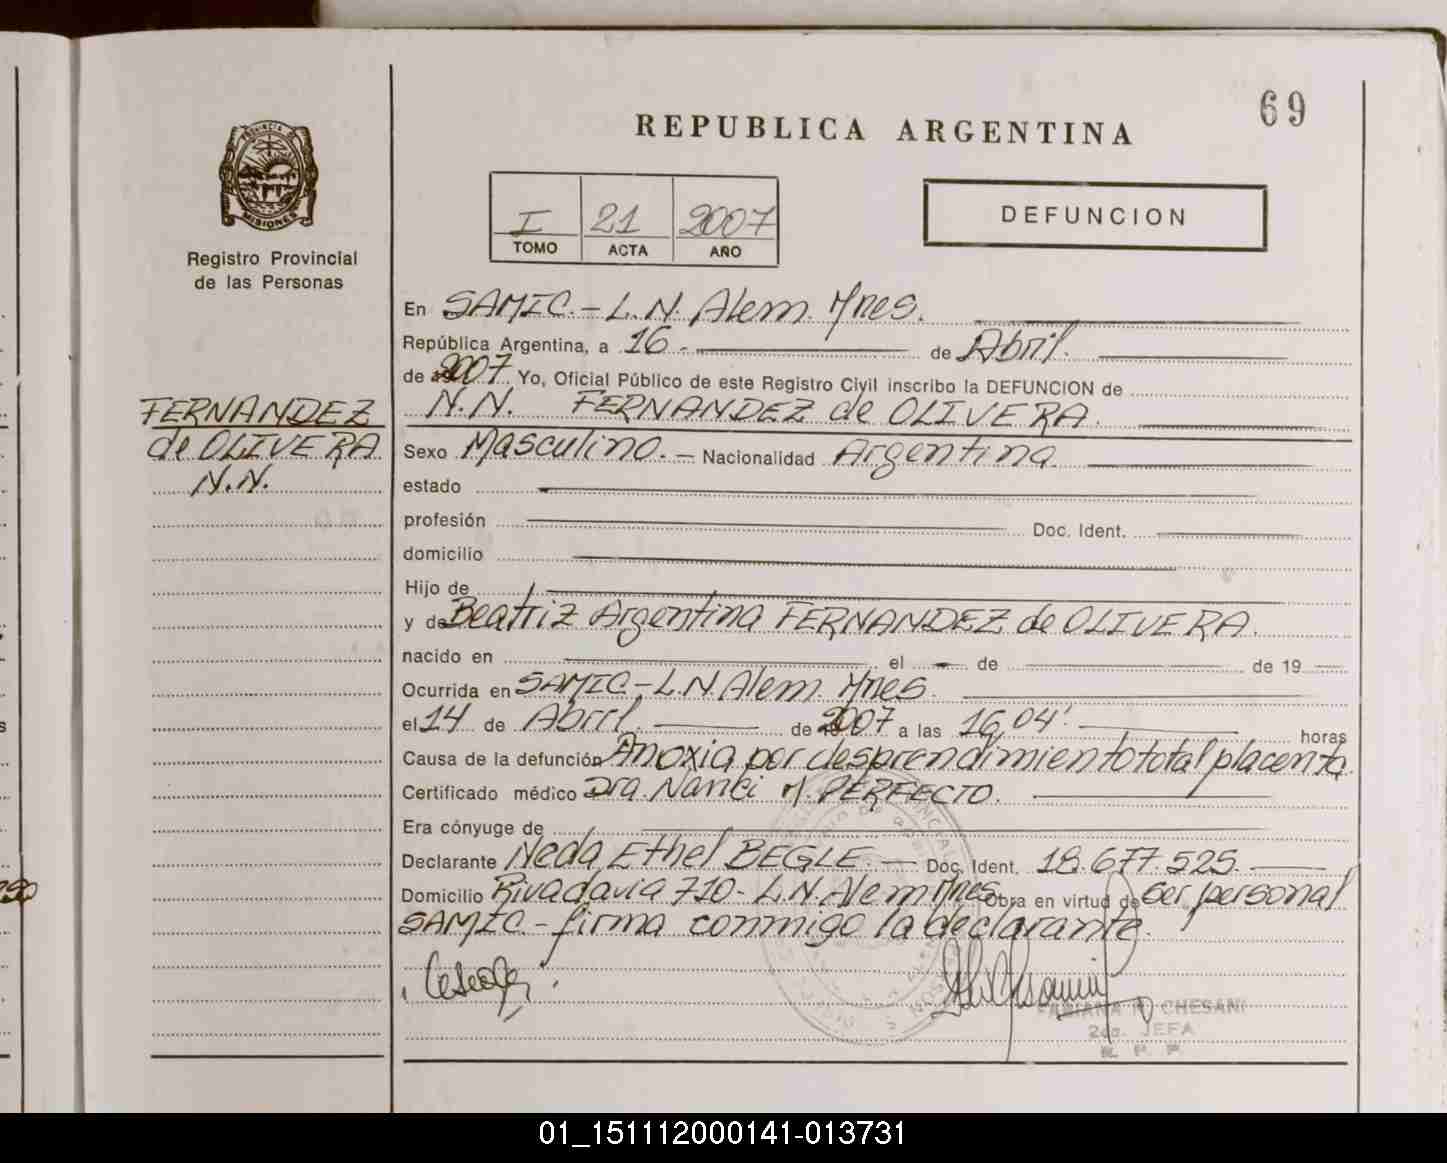 69
REPUBLICA ARGENTINA
PROVINCIA DE
MISIONES
Registro Provincial
de las Personas
I 21 2007
TOMO ACTA AÑO
DEFUNCION
FERNANDEZ
de OLIVERA
N.N.
En SAMIC.-L.N. Alem Mnes.
República Argentina, a 16.- de Abril.
de 2007 Yo, Oficial Público de este Registro Civil inscribo la DEFUNCION de
N.N. FERNANDEZ de OLIVERA.
Sexo Masculino.- Nacionalidad Argentina
estado
profesión Doc. Ident.
domicilio
Hijo de
y de Beatriz Argentina FERNANDEZ de OLIVERA.
nacido en el de de 19
Ocurrida en SAMIC-L.N Alem Mnes.
el 14 de Abril de 2007 a las 16,04' horas
Causa de la defunción Anoxia por desprendimiento total placenta
Certificado médico Dra Nanci M. PERFECTO.
Era cónyuge de
Declarante Neda Ethel BEGLE.- Doc. Ident. 18.677.525.
Domicilio Rivadavia 710- L.N. Alem Mnes. Obra en virtud de ser personal
SAMIC.-firma conmigo la declarante.
FABIANA R. CHESANI
2da. JEFA
R. P. P.
01_151112000141-013731